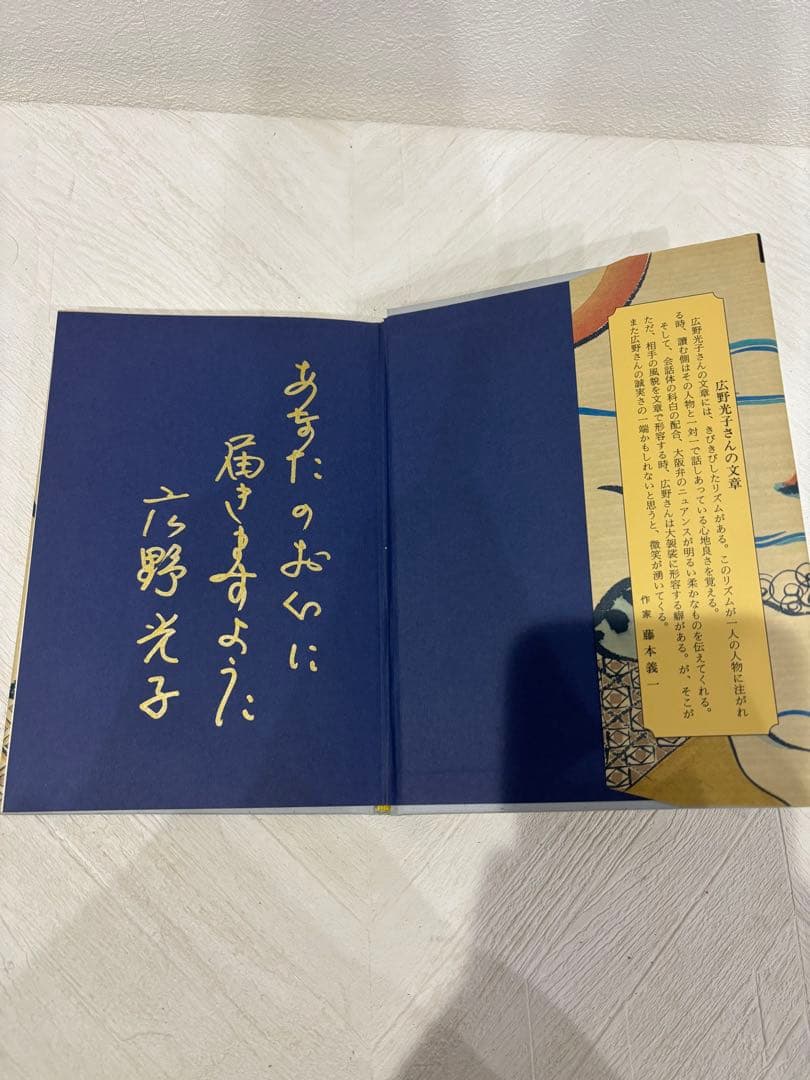 広野光子さんの文章
広野光子さんの文章には、きびきびしたリズムがある。このリズムが一人の人物に注がれ
る時、讀む側はその人物と一対一で話しあっている心地良さを覚える。
そして、会話体の科白の配合、大阪弁のニュアンスが明るい柔かなものを伝えてくれる。
ただ、相手の風貌を文章で形容する時、広野さんは大袈裟に形容する癖がある。が、そこが
また広野さんの誠実さの一端かもしれないと思うと、微笑が湧いてくる。
作家 藤本義一
あなたのお心に
届きますように
広野光子